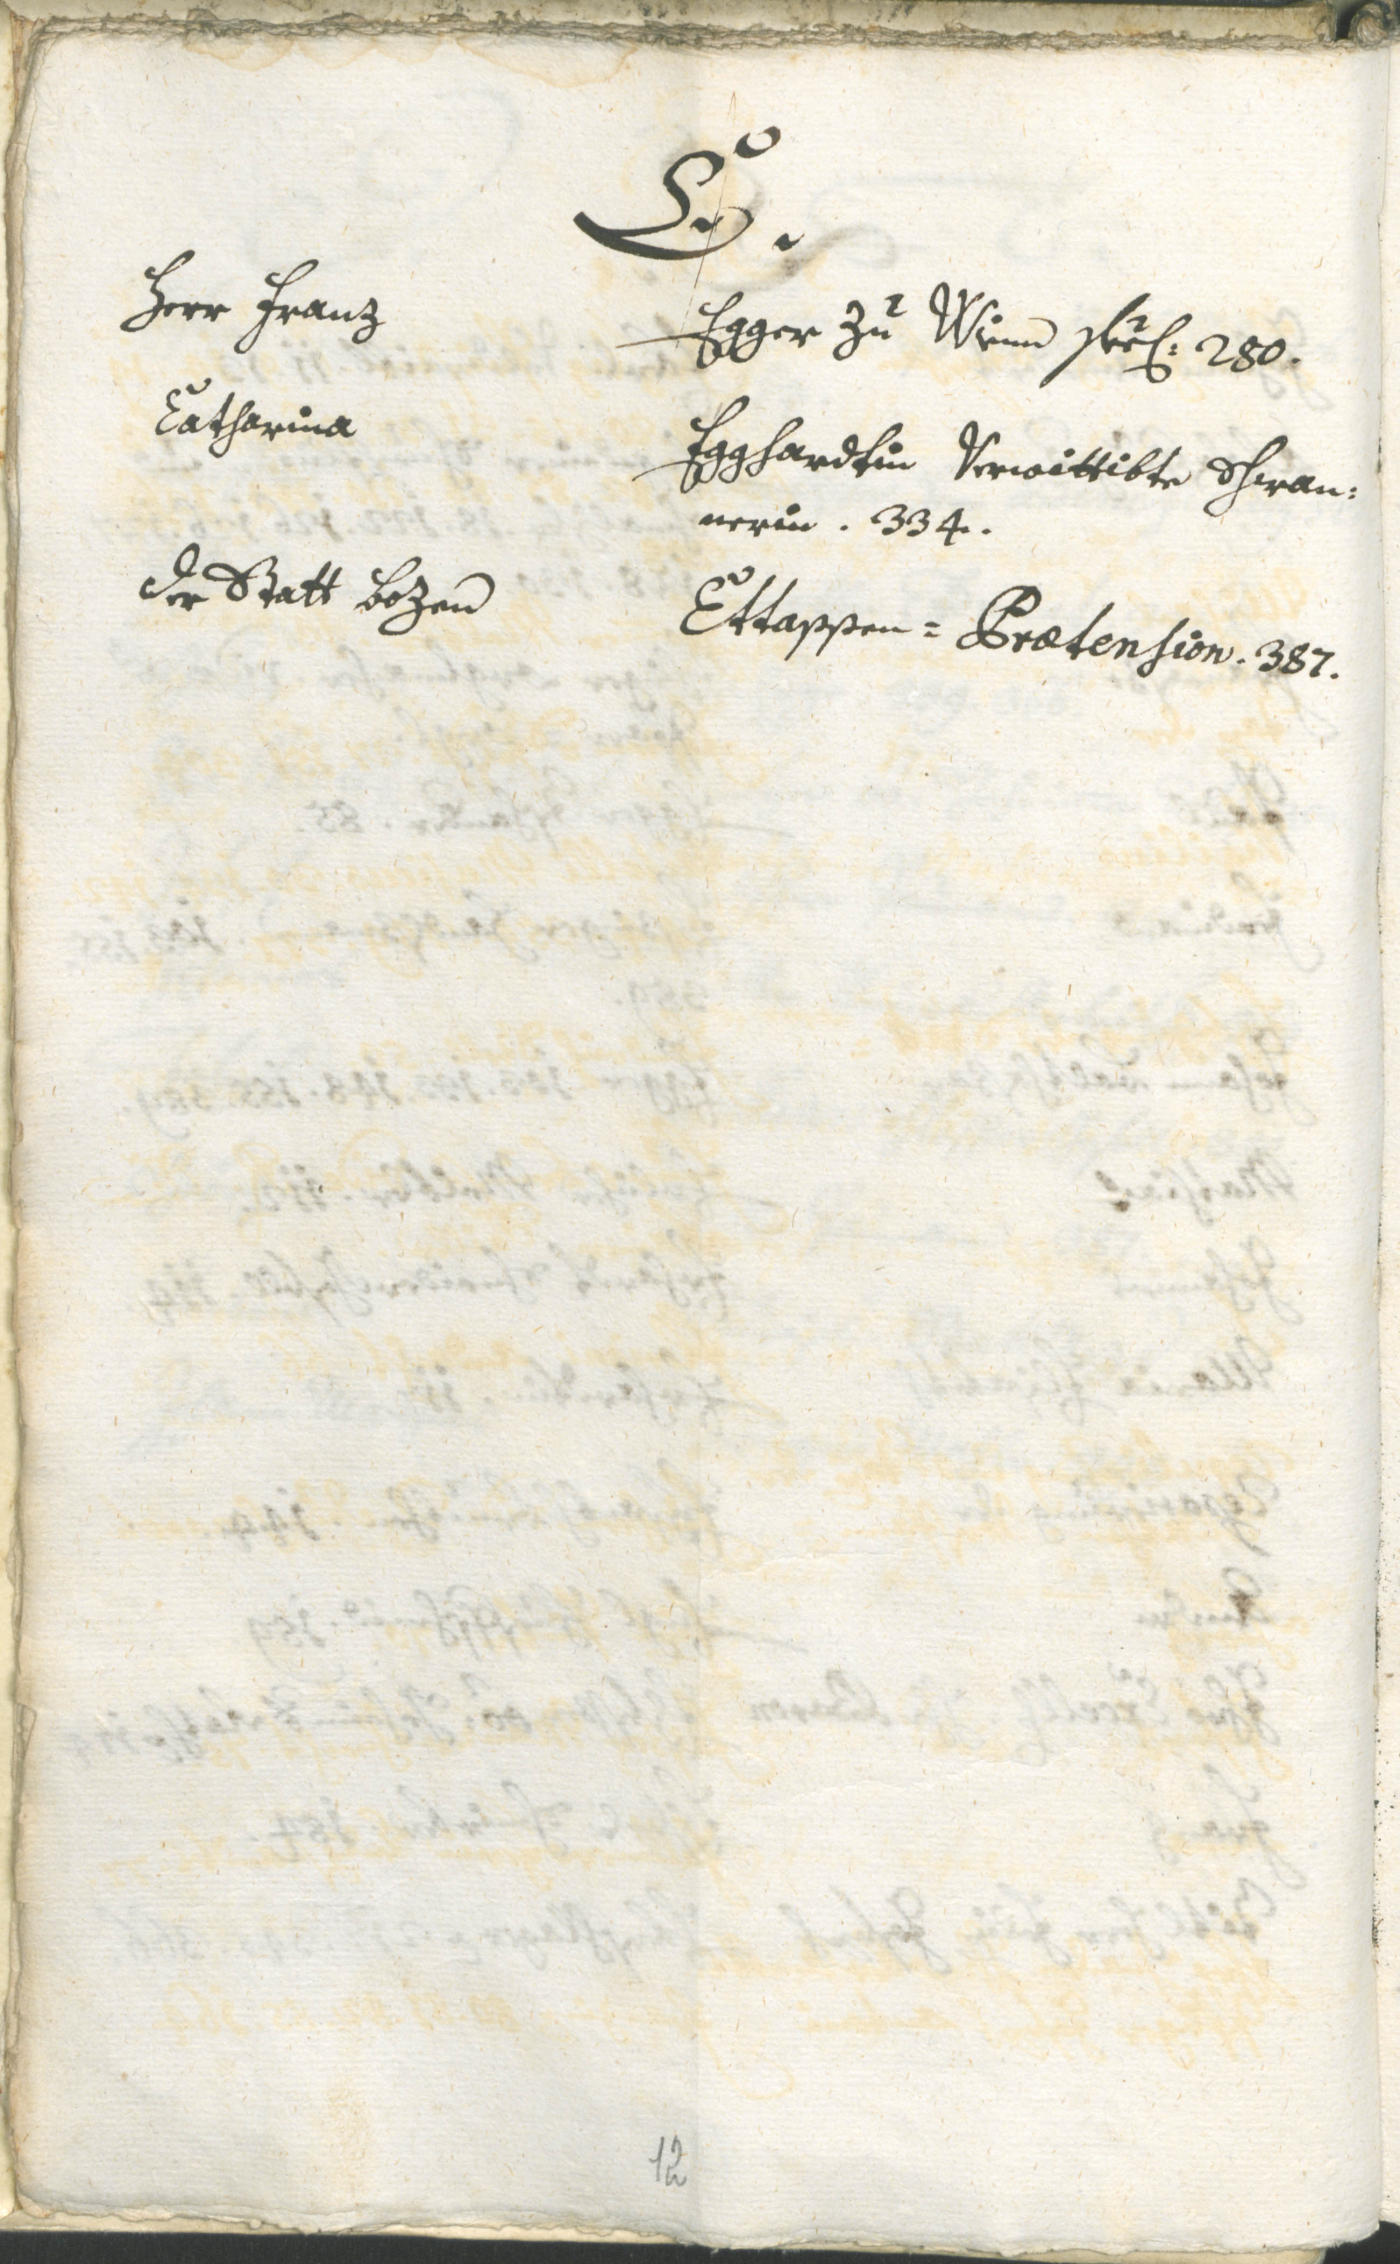 E.
Herr Franz
Egger zu Wienn 280.
Catharina
Egghardtin Verwittibte Schran=
nerin. 334.
der Statt Bozen
Ettappen= Prætension. 387.
12